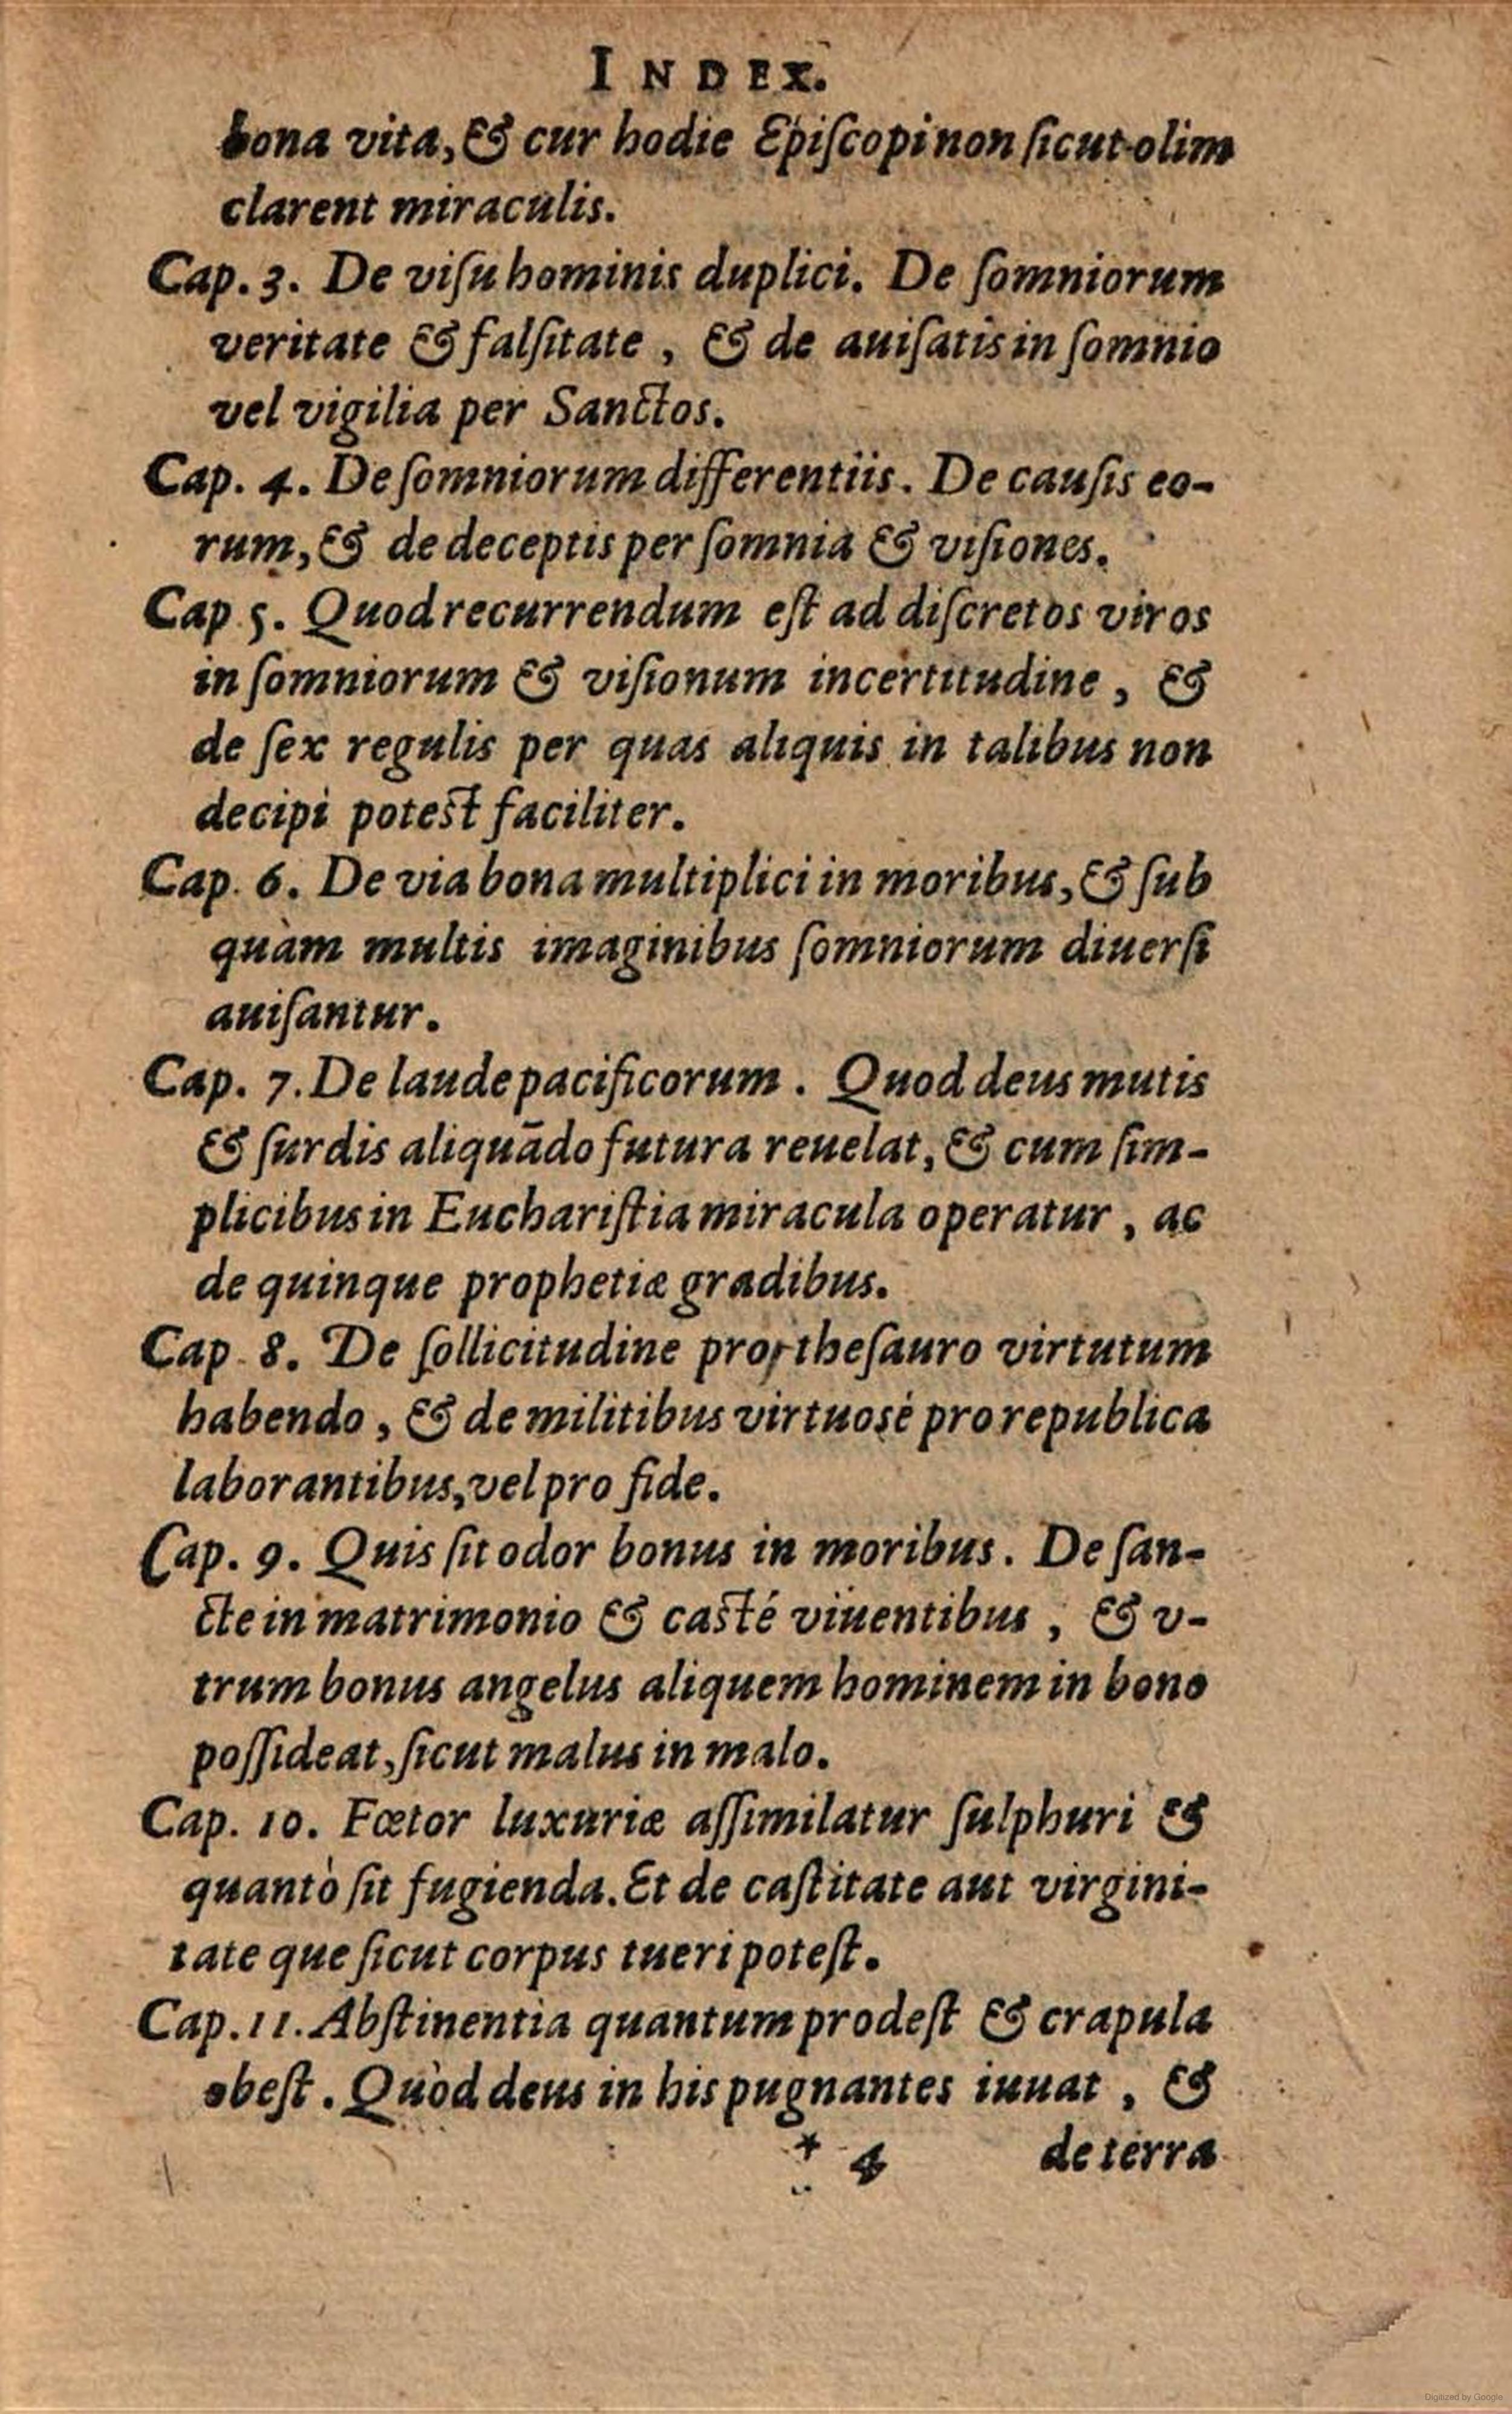 INDEX.
bona vita, & cur hodie Epiſcopi non ſicut olim
clarent miraculis.
Cap. 3. De viſu hominis duplici. De ſomniorum
veritate & falſitate, & de auiſatis in ſomnio
vel vigilia per Sanctos.
Cap. 4. De ſomniorum differentiis. De cauſis eo-
rum, & de deceptis per ſomnia & viſiones.
Cap 5. Quod recurrendum eſt ad diſcretos viros
in ſomniorum & viſionum incertitudine, &
de ſex regulis per quas aliquis in talibus non
decipi poteſt faciliter.
Cap. 6. De via bona multiplici in moribus, & ſub
quàm multis imaginibus ſomniorum diuerſi
auiſantur.
Cap. 7. De laude pacificorum. Quod deus mutis
& ſurdis aliquādo futura reuelat, & cum ſim-
plicibus in Euchariſtia miracula operatur, ac
de quinque prophetiæ gradibus.
Cap. 8. De ſollicitudine pro theſauro virtutum
habendo, & de militibus virtuosé pro republica
laborantibus, vel pro fide.
Cap. 9. Quis ſit odor bonus in moribus. De ſan-
cte in matrimonio & caſté viuentibus, & v-
trum bonus angelus aliquem hominem in bono
poſſideat, ſicut malus in malo.
Cap. 10. Fœtor luxuriæ aſſimilatur ſulphuri &
quantò ſit fugienda. Et de caſtitate aut virgini-
tate que ſicut corpus tueri poteſt.
Cap. 11. Abſtinentia quantum prodeſt & crapula
obeſt. Quòd deus in his pugnantes iuuat, &
* 4 de terra
Digitized by Google